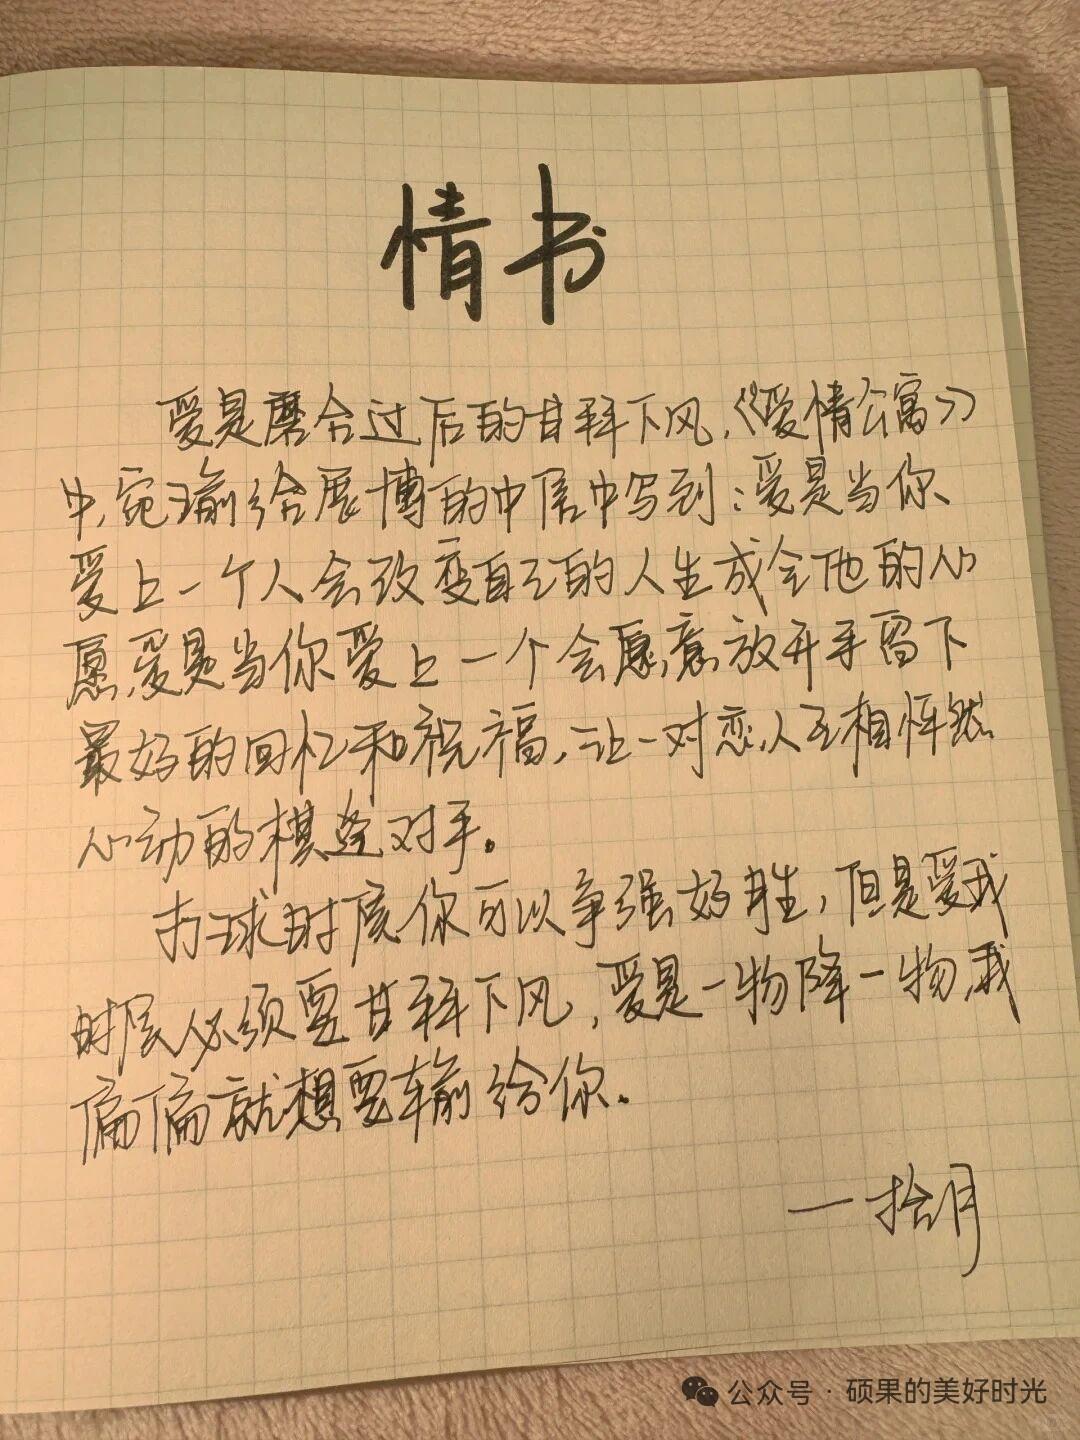 情书
爱是磨合过后的甘拜下风，《爱情公寓》
中，宛瑜给展博的中信中写到：爱是当你
爱上一个人会改变自己的人生成全他的心
愿，爱是当你爱上一个会愿意放开手留下
最好的回忆和祝福，让一对恋人互相怦然
心动的棋逢对手。
打球时候你可以争强好胜，但是爱我
时候必须要甘拜下风，爱是一物降一物，我
偏偏就想要输给你.
—拾月
公众号·硕果的美好时光